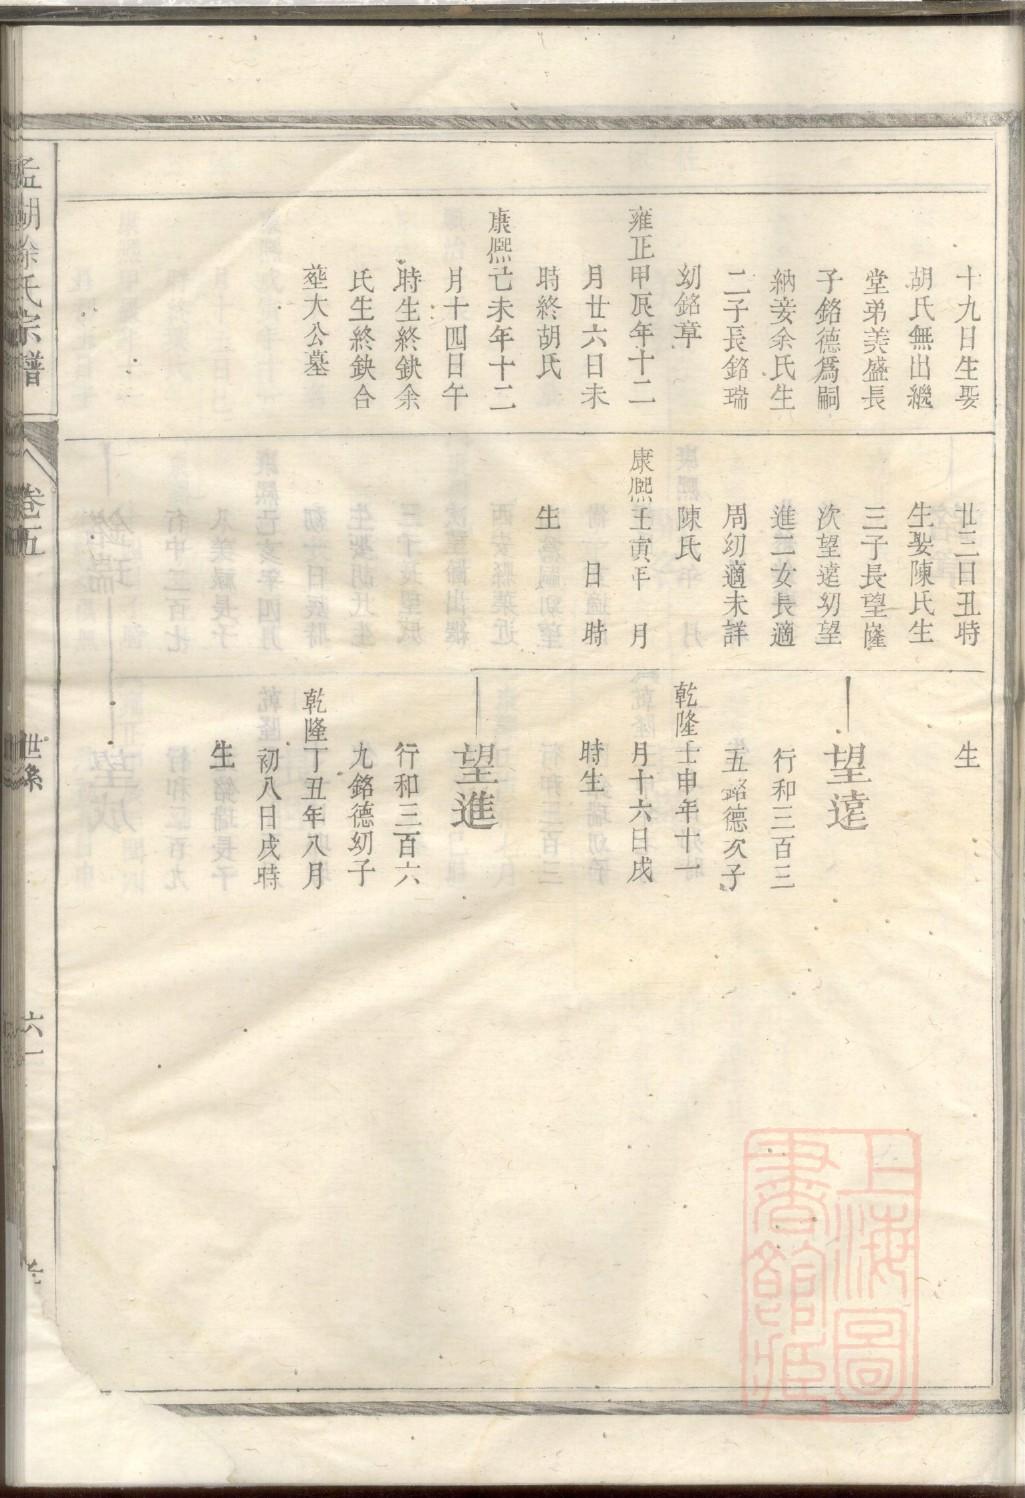 十九日生娶
胡氏無出繼
堂弟美盛長
子銘德爲嗣
納妾余氏生
二子長銘瑞
幼銘章
雍正甲辰年十二
月廿六日未
時終胡氏
康熙己未年十二
月十四日午
時生終鈌余
氏生終鈌合
塟大公墓
廿三日丑時
生娶陳氏生
三子長望嶐
次望遠幼望
進二女長適
周幼適未詳
陳氏
康熙壬寅年　月
　日　時
生
生
望遠
行和三百三
五銘德次子
乾隆壬申年十一
月十六日戌
時生
望進
行和三百六
九銘德幼子
乾隆丁丑年八月
初八日戌時
生
孟湖徐氏宗譜
卷五
世系
六一
上海圖
書館藏